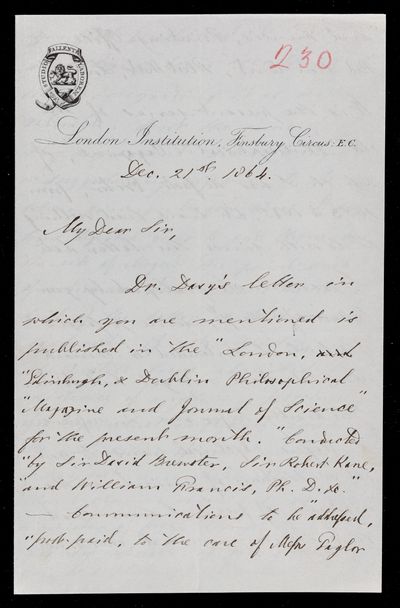 230
London Institution, Finsbury Circus: E.C.
Dec. 21st. 1864.
My Dear Sir,
Dr. Davy's letter in
which you are mentioned is
published in the "London, and
"Edinburgh, & Dublin Philosophical
"Magazine and Journal of Science"
for the present month. "Conducted
"by Sir David Brewster, Sir Robert Kane,
"and William Francis, Ph. D. &c."
— Communications to be "addressed,
"post-paid, to the care of Messrs Taylor